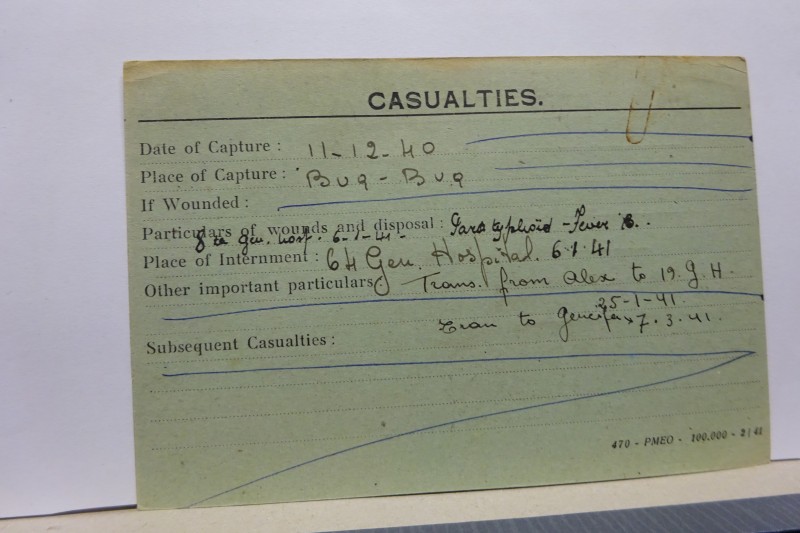 CASUALTIES.
Date of Capture : 11-12-40
Place of Capture : Bug - Bug
If Wounded :
Particulars of wounds and disposal : Paratyphoid - Fever B.
to Gen. Hosp. 6-1-41-
Place of Internment : 64 Gen. Hospital. 6.1.41
Other important particulars : Trans. from Alex to 19. G. H.
25-1-41.
Tran to 7.3.41.
Subsequent Casualties :
470 - PMEO - 100,000 - 2/41